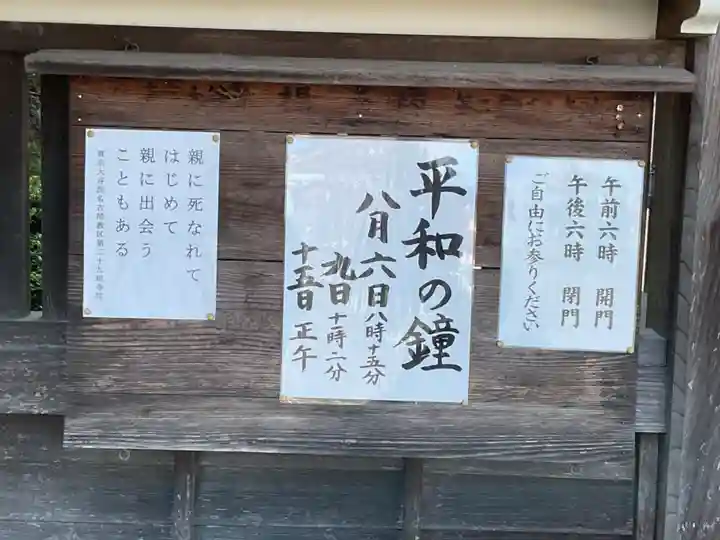 午前六時 開門
午後六時 閉門
ご自由にお参りください
平和の鐘
八月六日八時十五分
九日十一時二分
十五日 正午
親に死なれて
はじめて
親に出会う
こともある